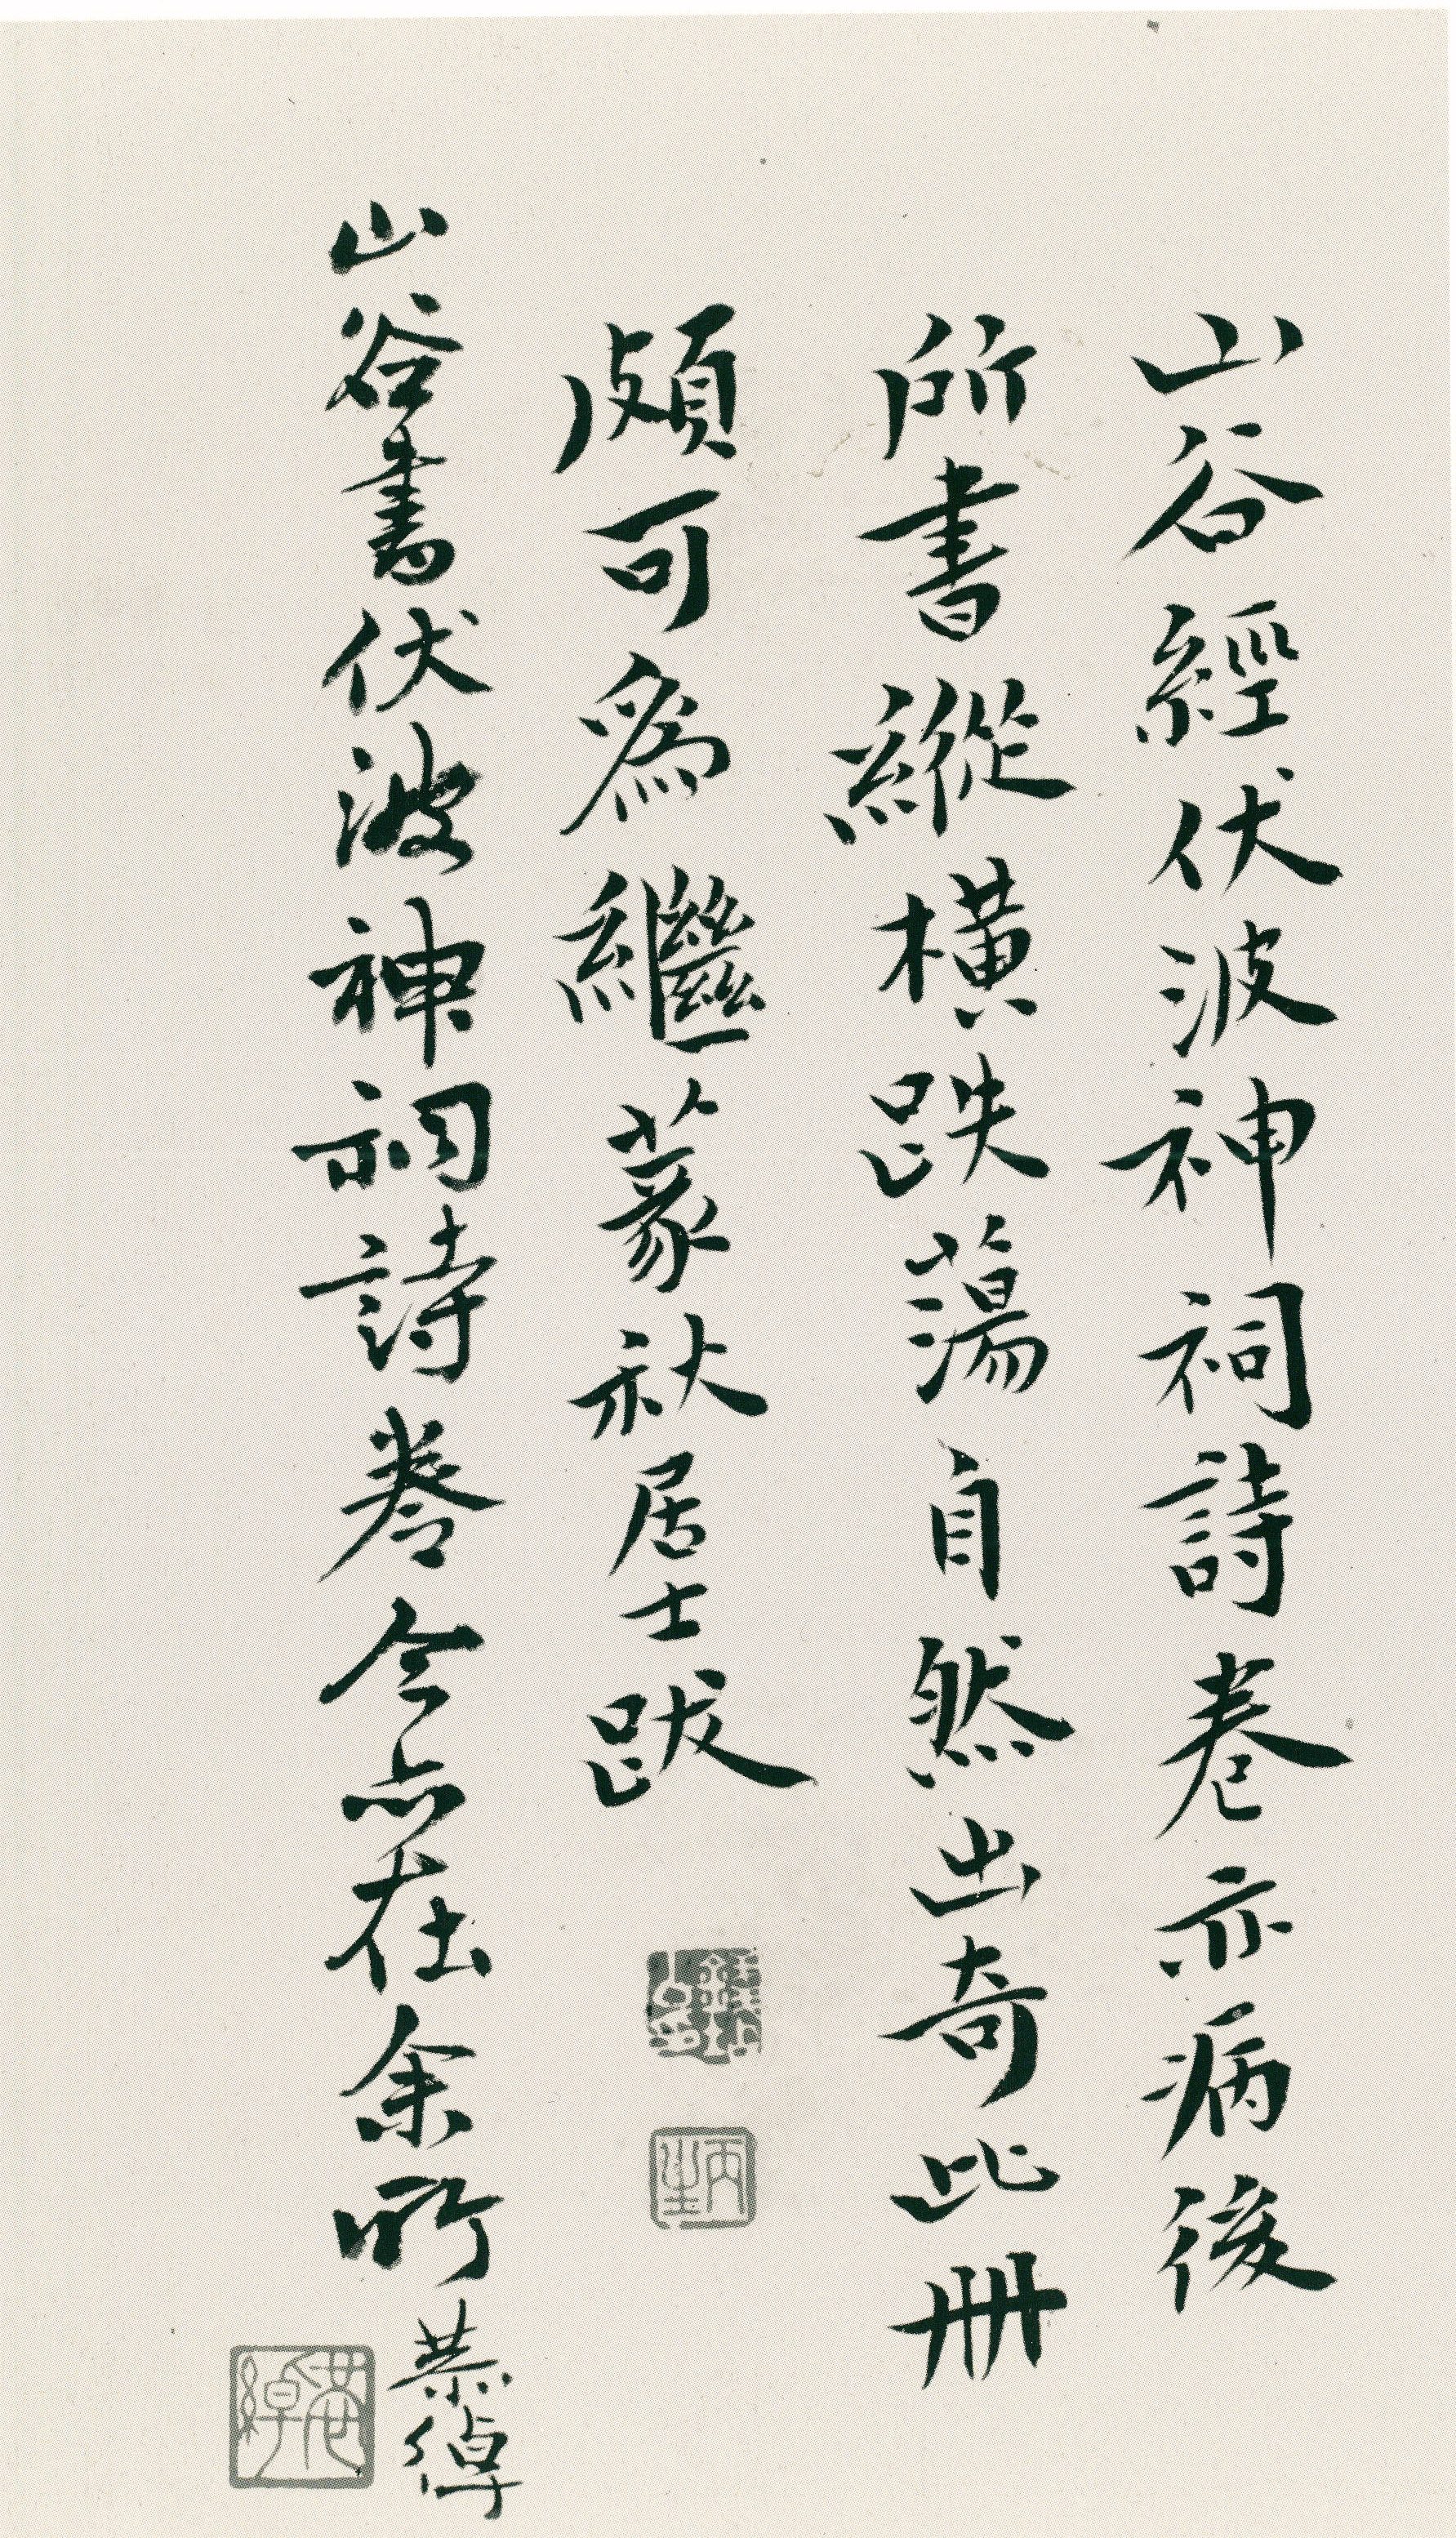 山谷經伏波神祠詩卷亦病後
所書縱橫跌蕩自然出奇此冊
頗可為繼篆秋居士跋
山谷書伏波神祠詩卷今亦在余所 恭綽